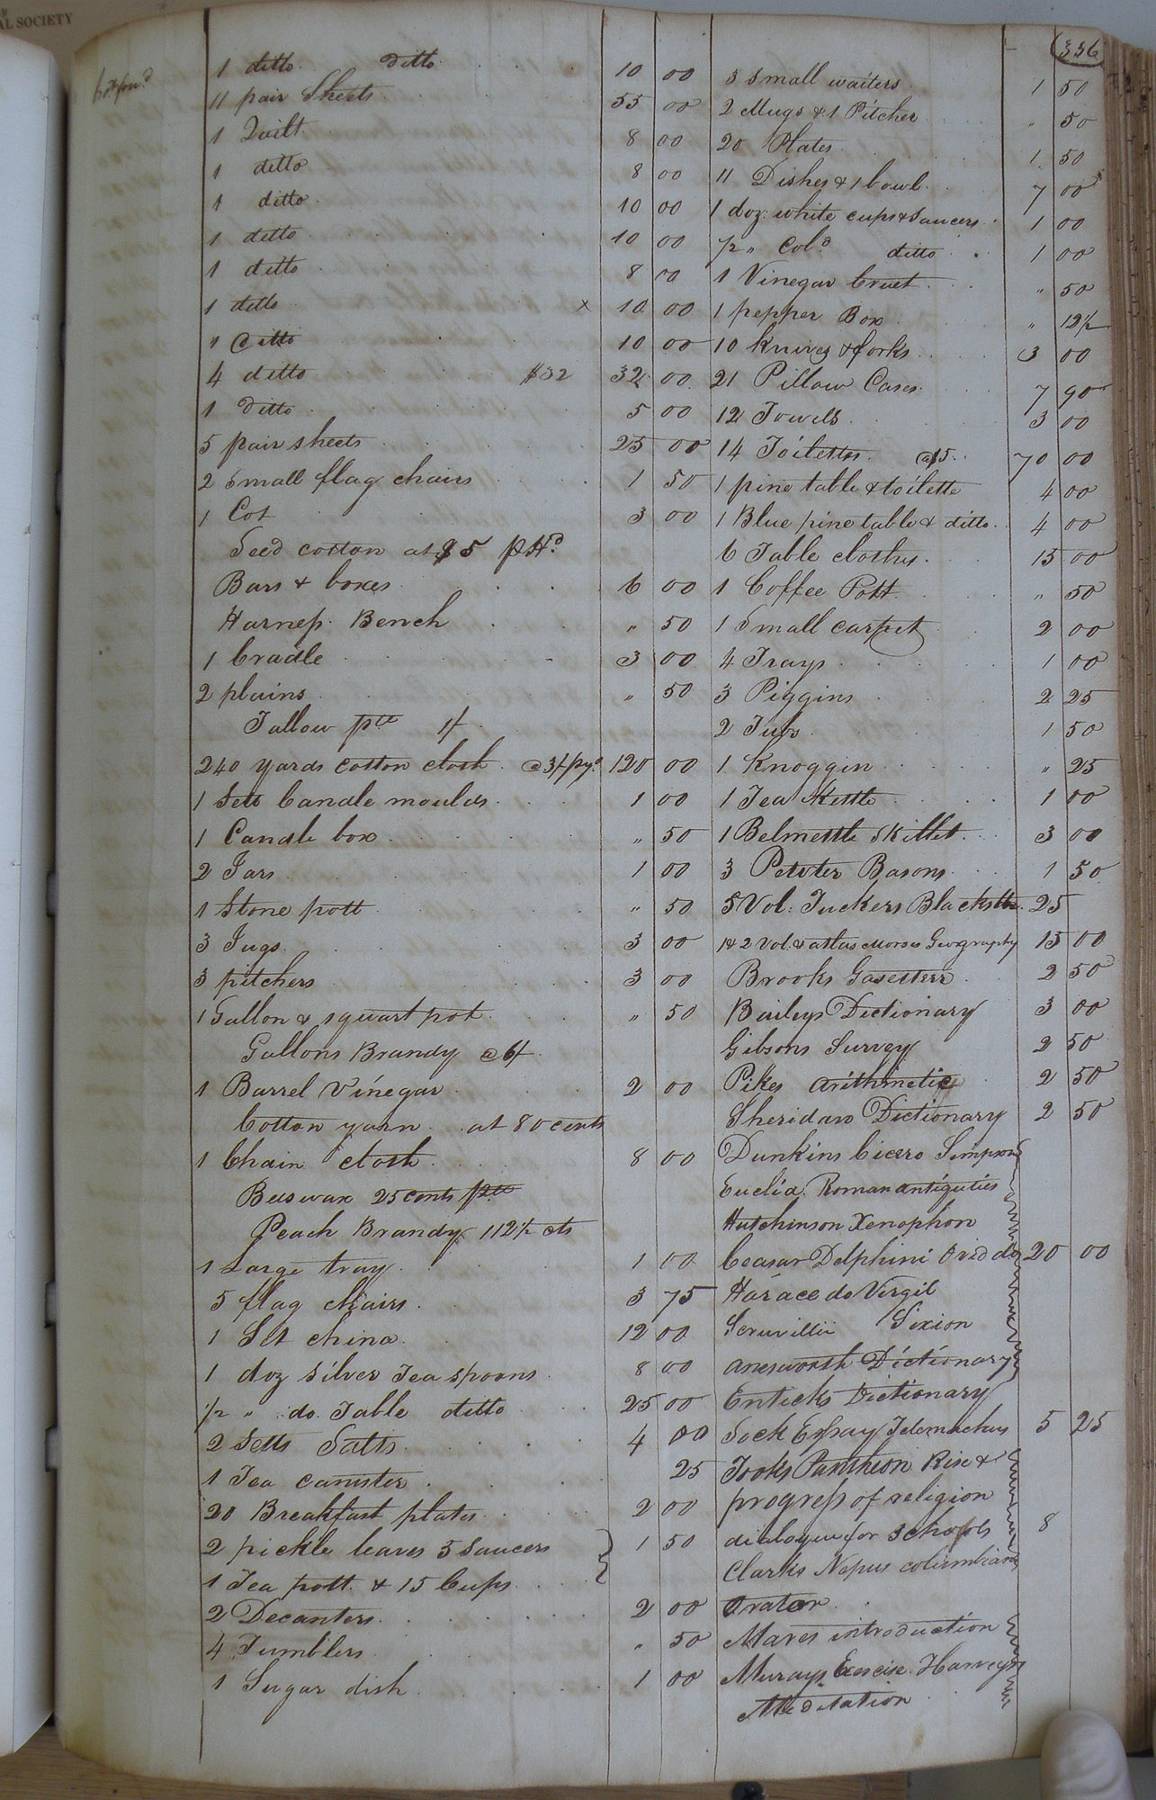 AL SOCIETY
336
1 ditto ditto 10 00
11 pair Sheets 55 00
1 Quilt 8 00
1 ditto 8 00
1 ditto 10 00
1 ditto 10 00
1 ditto 8 00
1 ditto x 10 00
" ditto 10 00
4 ditto $32 32 00
1 Ditto 5 00
5 pair sheets 25 00
2 Small flag chairs 1 50
1 Cot 3 00
Seed cotton at $5 pHd
Bars & boxes 6 00
Harness Bench " 50
1 Cradle 3 00
2 plains " 50
Tallow pr lb 1/
240 yards cotton cloth @3/pyd 120 00
1 Sett Candle moulds 1 00
1 Candle box " 50
2 Jars 1 00
1 Stone pott " 50
3 Jugs 3 00
3 pitchers 3 00
1 Gallon & 1 quart pot " 50
Gallons Brandy @6/
1 Barrel Vinegar 2 00
Cotton yarn at 80 cents
1 Chain cloth 8 00
Beeswax 25 cents pr lb
Peach Brandy 112½ cts
1 Large tray 1 00
5 flag chairs 3 75
1 Set china 12 00
1 doz silver Tea spoons 8 00
½ " do Table ditto 25 00
2 Setts Salts 4 00
1 Tea canister 25
20 Breakfast plates 2 00
2 pickle leaves 5 Saucers
1 Tea pott & 15 Cups 1 50
2 Decanters 2 00
4 Tumblers " 50
1 Sugar dish 1 00
3 Small waiters 1 50
2 Mugs & 1 Pitcher " 50
20 Plates 1 50
11 Dishes & 1 bowl 7 00
1 doz white cups & Saucers 1 00
½ " Cold ditto 1 00
1 Vinegar Cruet " 50
1 pepper Box " 12½
10 knives & forks 3 00
21 Pillow Cases 7 90
12 Towels 3 00
14 Toiletts @$5 70 00
1 pine table & toilette 4 00
1 Blue pine table & ditto 4 00
6 Table cloths 15 00
1 Coffee Pott " 50
1 Small carpet 2 00
4 Trays 1 00
3 Piggins 2 25
2 Tubs 1 50
1 Knoggin " 25
1 Tea Kettle 1 00
1 Belmettle Skillet 3 00
3 Pewter Basons 1 50
5 Vol: Tuckers Blackstn 25
1 & 2 Vol. & atlas Morses Geography 15 00
Brooks Gasetteer 2 50
Baileys Dictionary 3 00
Gibsons Survey 2 50
Pikes arithmetic 2 50
Sheridans Dictionary 2 50
Dunkins Cicero Simpsons
Euclid Roman antiquities
Hutchinson Xenophon
Ceasar Delphini Ovid do 20 00
Horace do Virgil
Scruvillii Sixion
anesworth Dictionary
Enticks Dictionary
Lock Essay Telemachus 5 25
Tooks Pantheon Rise &
progress of religion
dialogue for schools 8
Clarks Nepus columbian
Orator
Mares introduction
Murays Exercise Harveys
Meditation